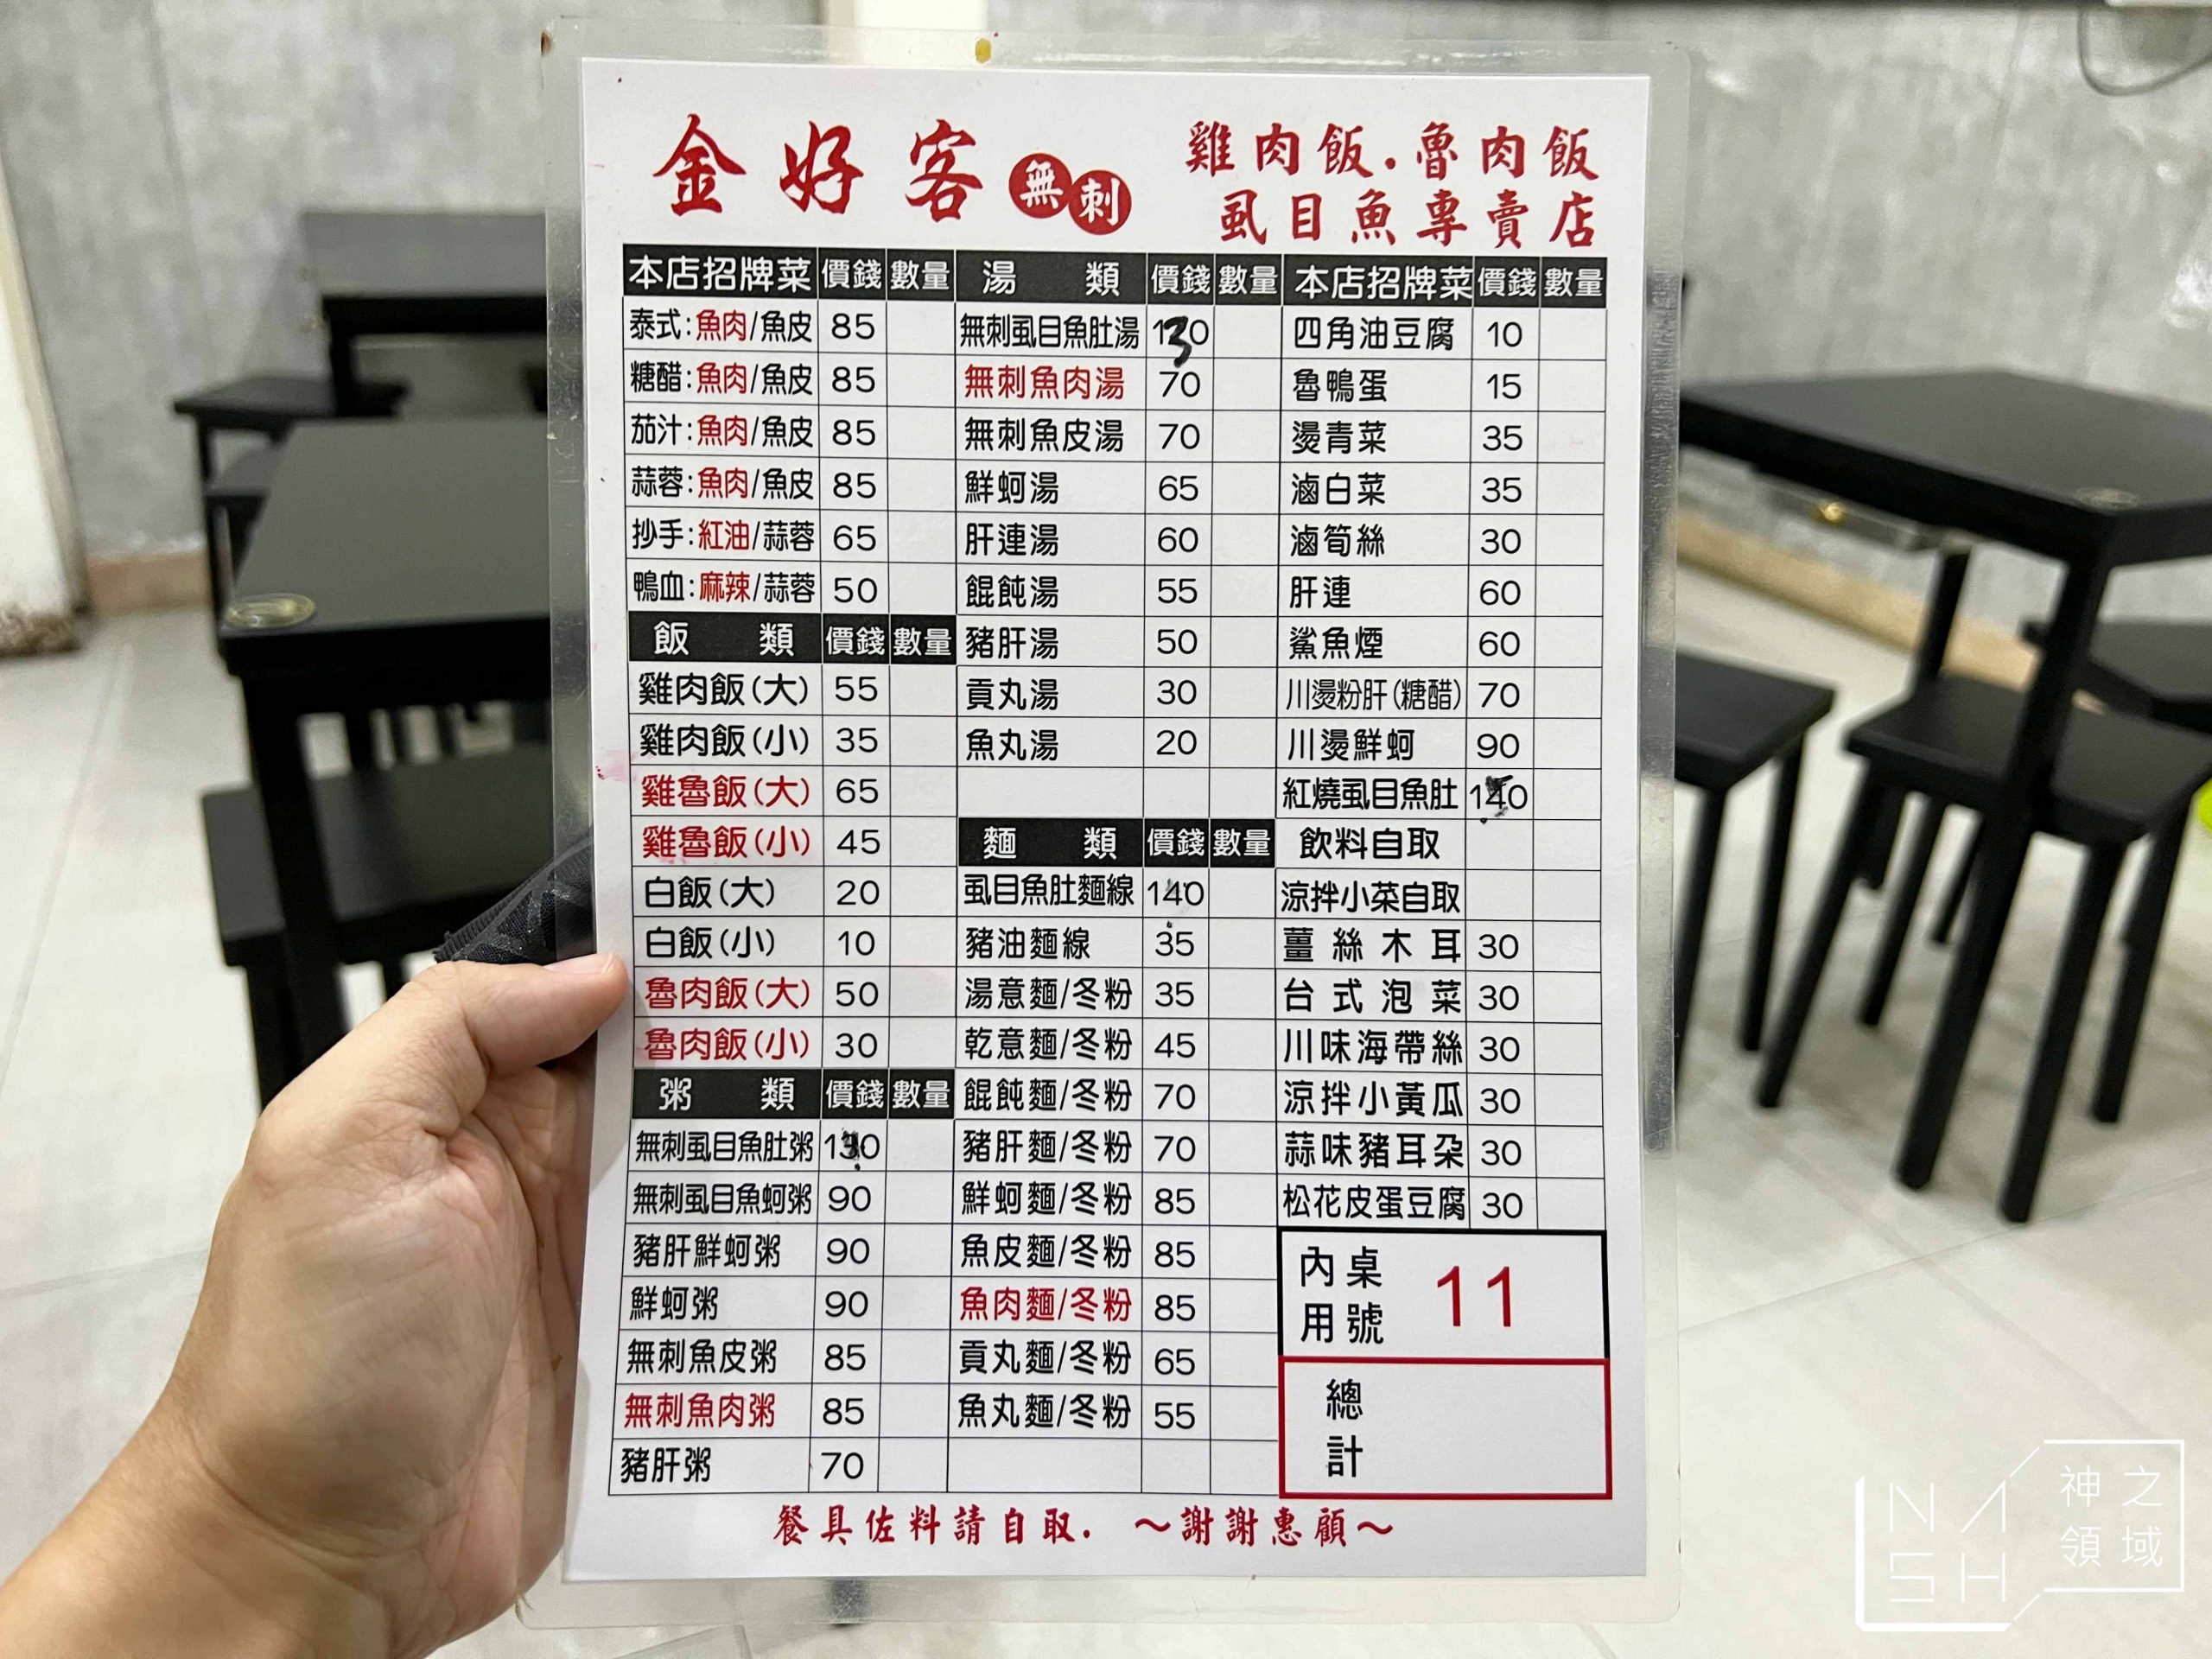 金好客 無刺
雞肉飯.魯肉飯
虱目魚專賣店
本店招牌菜 價錢 數量
泰式:魚肉/魚皮 85
糖醋:魚肉/魚皮 85
茄汁:魚肉/魚皮 85
蒜蓉:魚肉/魚皮 85
抄手:紅油/蒜蓉 65
鴨血:麻辣/蒜蓉 50
飯類 價錢 數量
雞肉飯(大) 55
雞肉飯(小) 35
雞魯飯(大) 65
雞魯飯(小) 45
白飯(大) 20
白飯(小) 10
魯肉飯(大) 50
魯肉飯(小) 30
粥類 價錢 數量
無刺虱目魚肚粥
無刺虱目魚蚵粥 90
豬肝鮮蚵粥 90
鮮蚵粥 90
無刺魚皮粥 85
無刺魚肉粥 85
豬肝粥 70
湯類 價錢 數量
無刺虱目魚肚湯 130
無刺魚肉湯 70
無刺魚皮湯 70
鮮蚵湯 65
肝連湯 60
餛飩湯 55
豬肝湯 50
貢丸湯 30
魚丸湯 20
麵類 價錢 數量
虱目魚肚麵線 140
豬油麵線 35
湯意麵/冬粉 35
乾意麵/冬粉 45
餛飩麵/冬粉 70
豬肝麵/冬粉 70
鮮蚵麵/冬粉 85
魚皮麵/冬粉 85
魚肉麵/冬粉 85
貢丸麵/冬粉 65
魚丸麵/冬粉 55
本店招牌菜 價錢 數量
四角油豆腐 10
魯鴨蛋 15
燙青菜 35
滷白菜 35
滷筍絲 30
肝連 60
鯊魚煙 60
川燙粉肝(糖醋) 70
川燙鮮蚵 90
紅燒虱目魚肚 140
飲料自取
涼拌小菜自取
薑絲木耳 30
台式泡菜 30
川味海帶絲 30
涼拌小黃瓜 30
蒜味豬耳朵 30
松花皮蛋豆腐 30
內用桌號 11
總計
餐具佐料請自取. ~謝謝惠顧~
NASH
神之領域